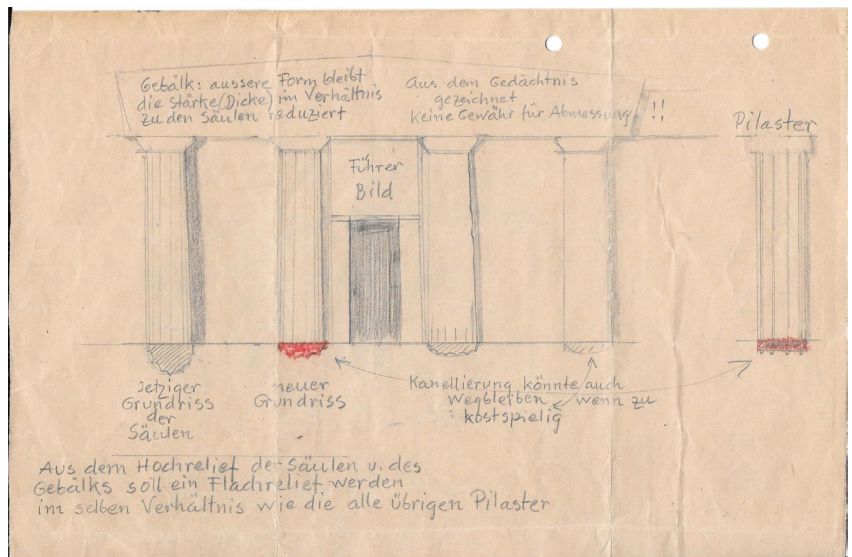 Gebälk: aussere Form bleibt
die Stärke (Dicke) im Verhältnis
zu den Säulen reduziert
Aus dem Gedächtnis
gezeichnet
keine Gewähr für Abmessung !!
Pilaster
Führer
Bild
Jetziger
Grundriss
der
Säulen
neuer
Grundriss
Kanellierung könnte auch
wegbleiben wenn zu
kostspielig
Aus dem Hochrelief der Säulen u. des
Gebälks soll ein Flachrelief werden
im selben Verhältnis wie die alle übrigen Pilaster